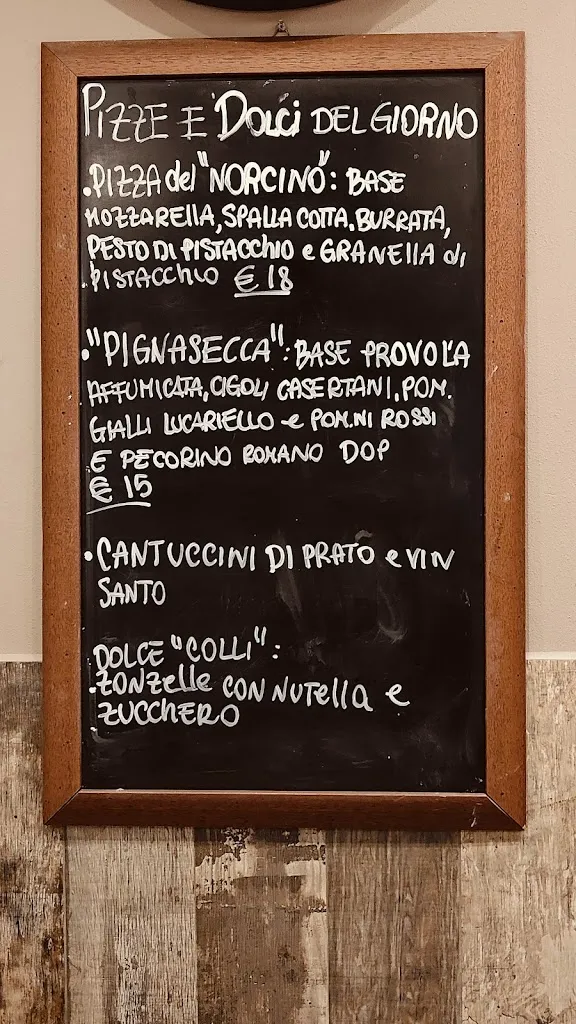 PIZZE E DOLCI DEL GIORNO
• PIZZA del "NORCINO": BASE
MOZZARELLA, SPALLA COTTA, BURRATA,
PESTO DI PISTACCHIO e GRANELLA di
PISTACCHIO € 18
• "PIGNASECCA": BASE PROVOLA
AFFUMICATA, CIGOLI CASERTANI, POM.
GIALLI LUCARIELLO e POM.NI ROSSI
E PECORINO ROMANO DOP
€ 15
• CANTUCCINI DI PRATO e VIN
SANTO
DOLCE "COLLI":
• ZONZELLE CON NUTELLA e
ZUCCHERO